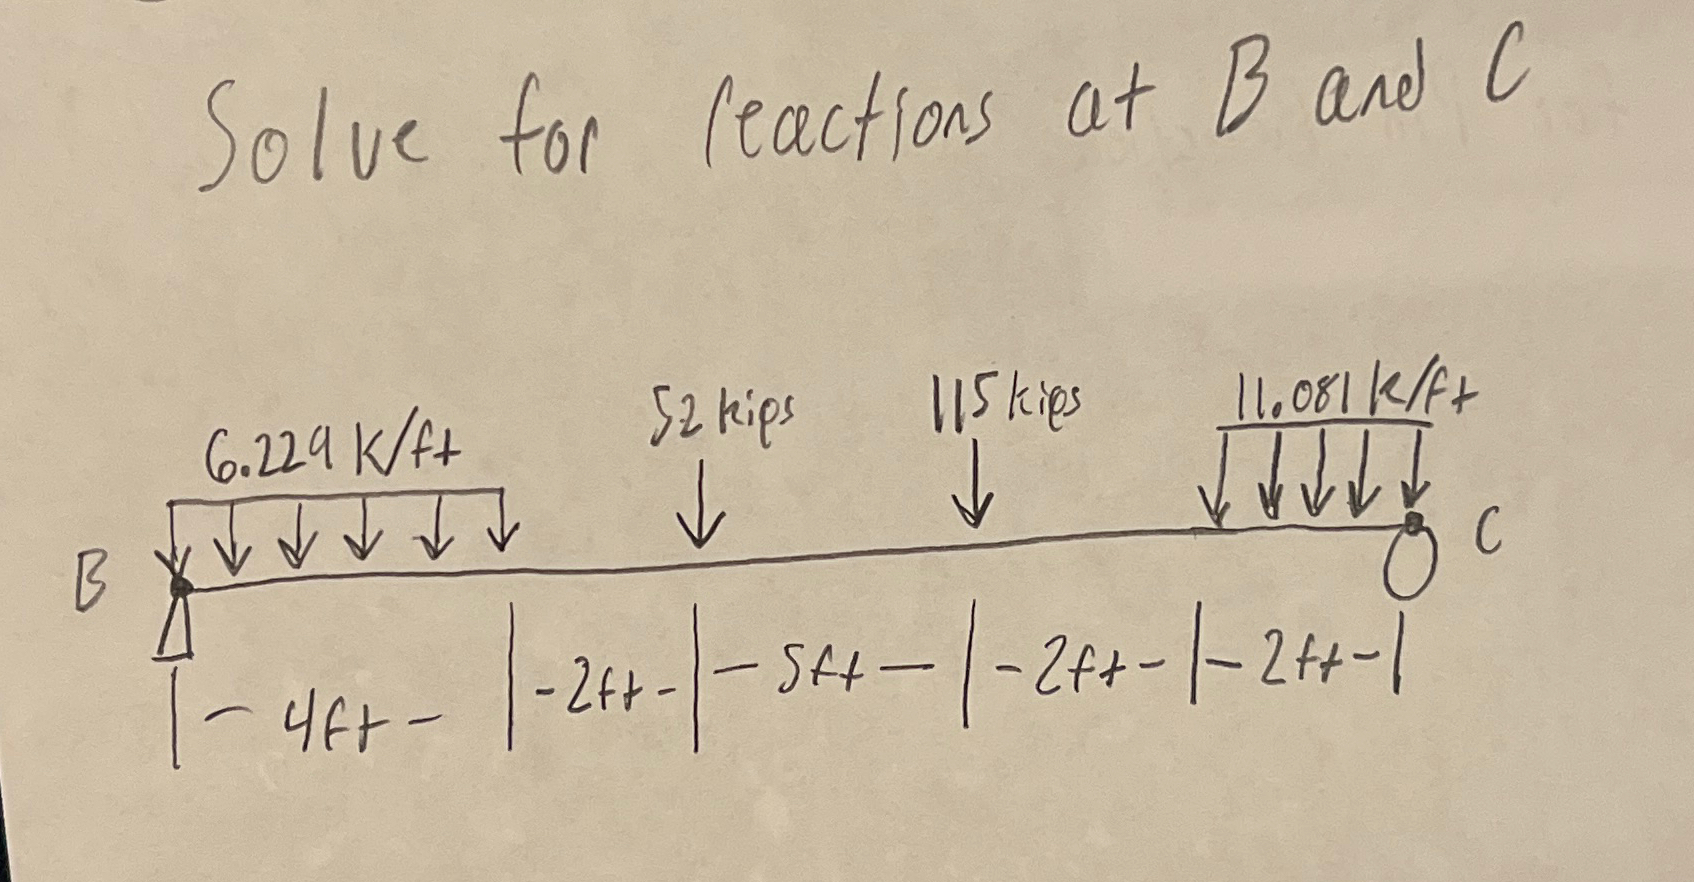 Solve for reactions at B and C
52 kips 115 kips 11.081 k/ft
6.229 k/ft
B C
|- 4ft - |-2ft-|- 5ft -|-2ft-|-2ft-|